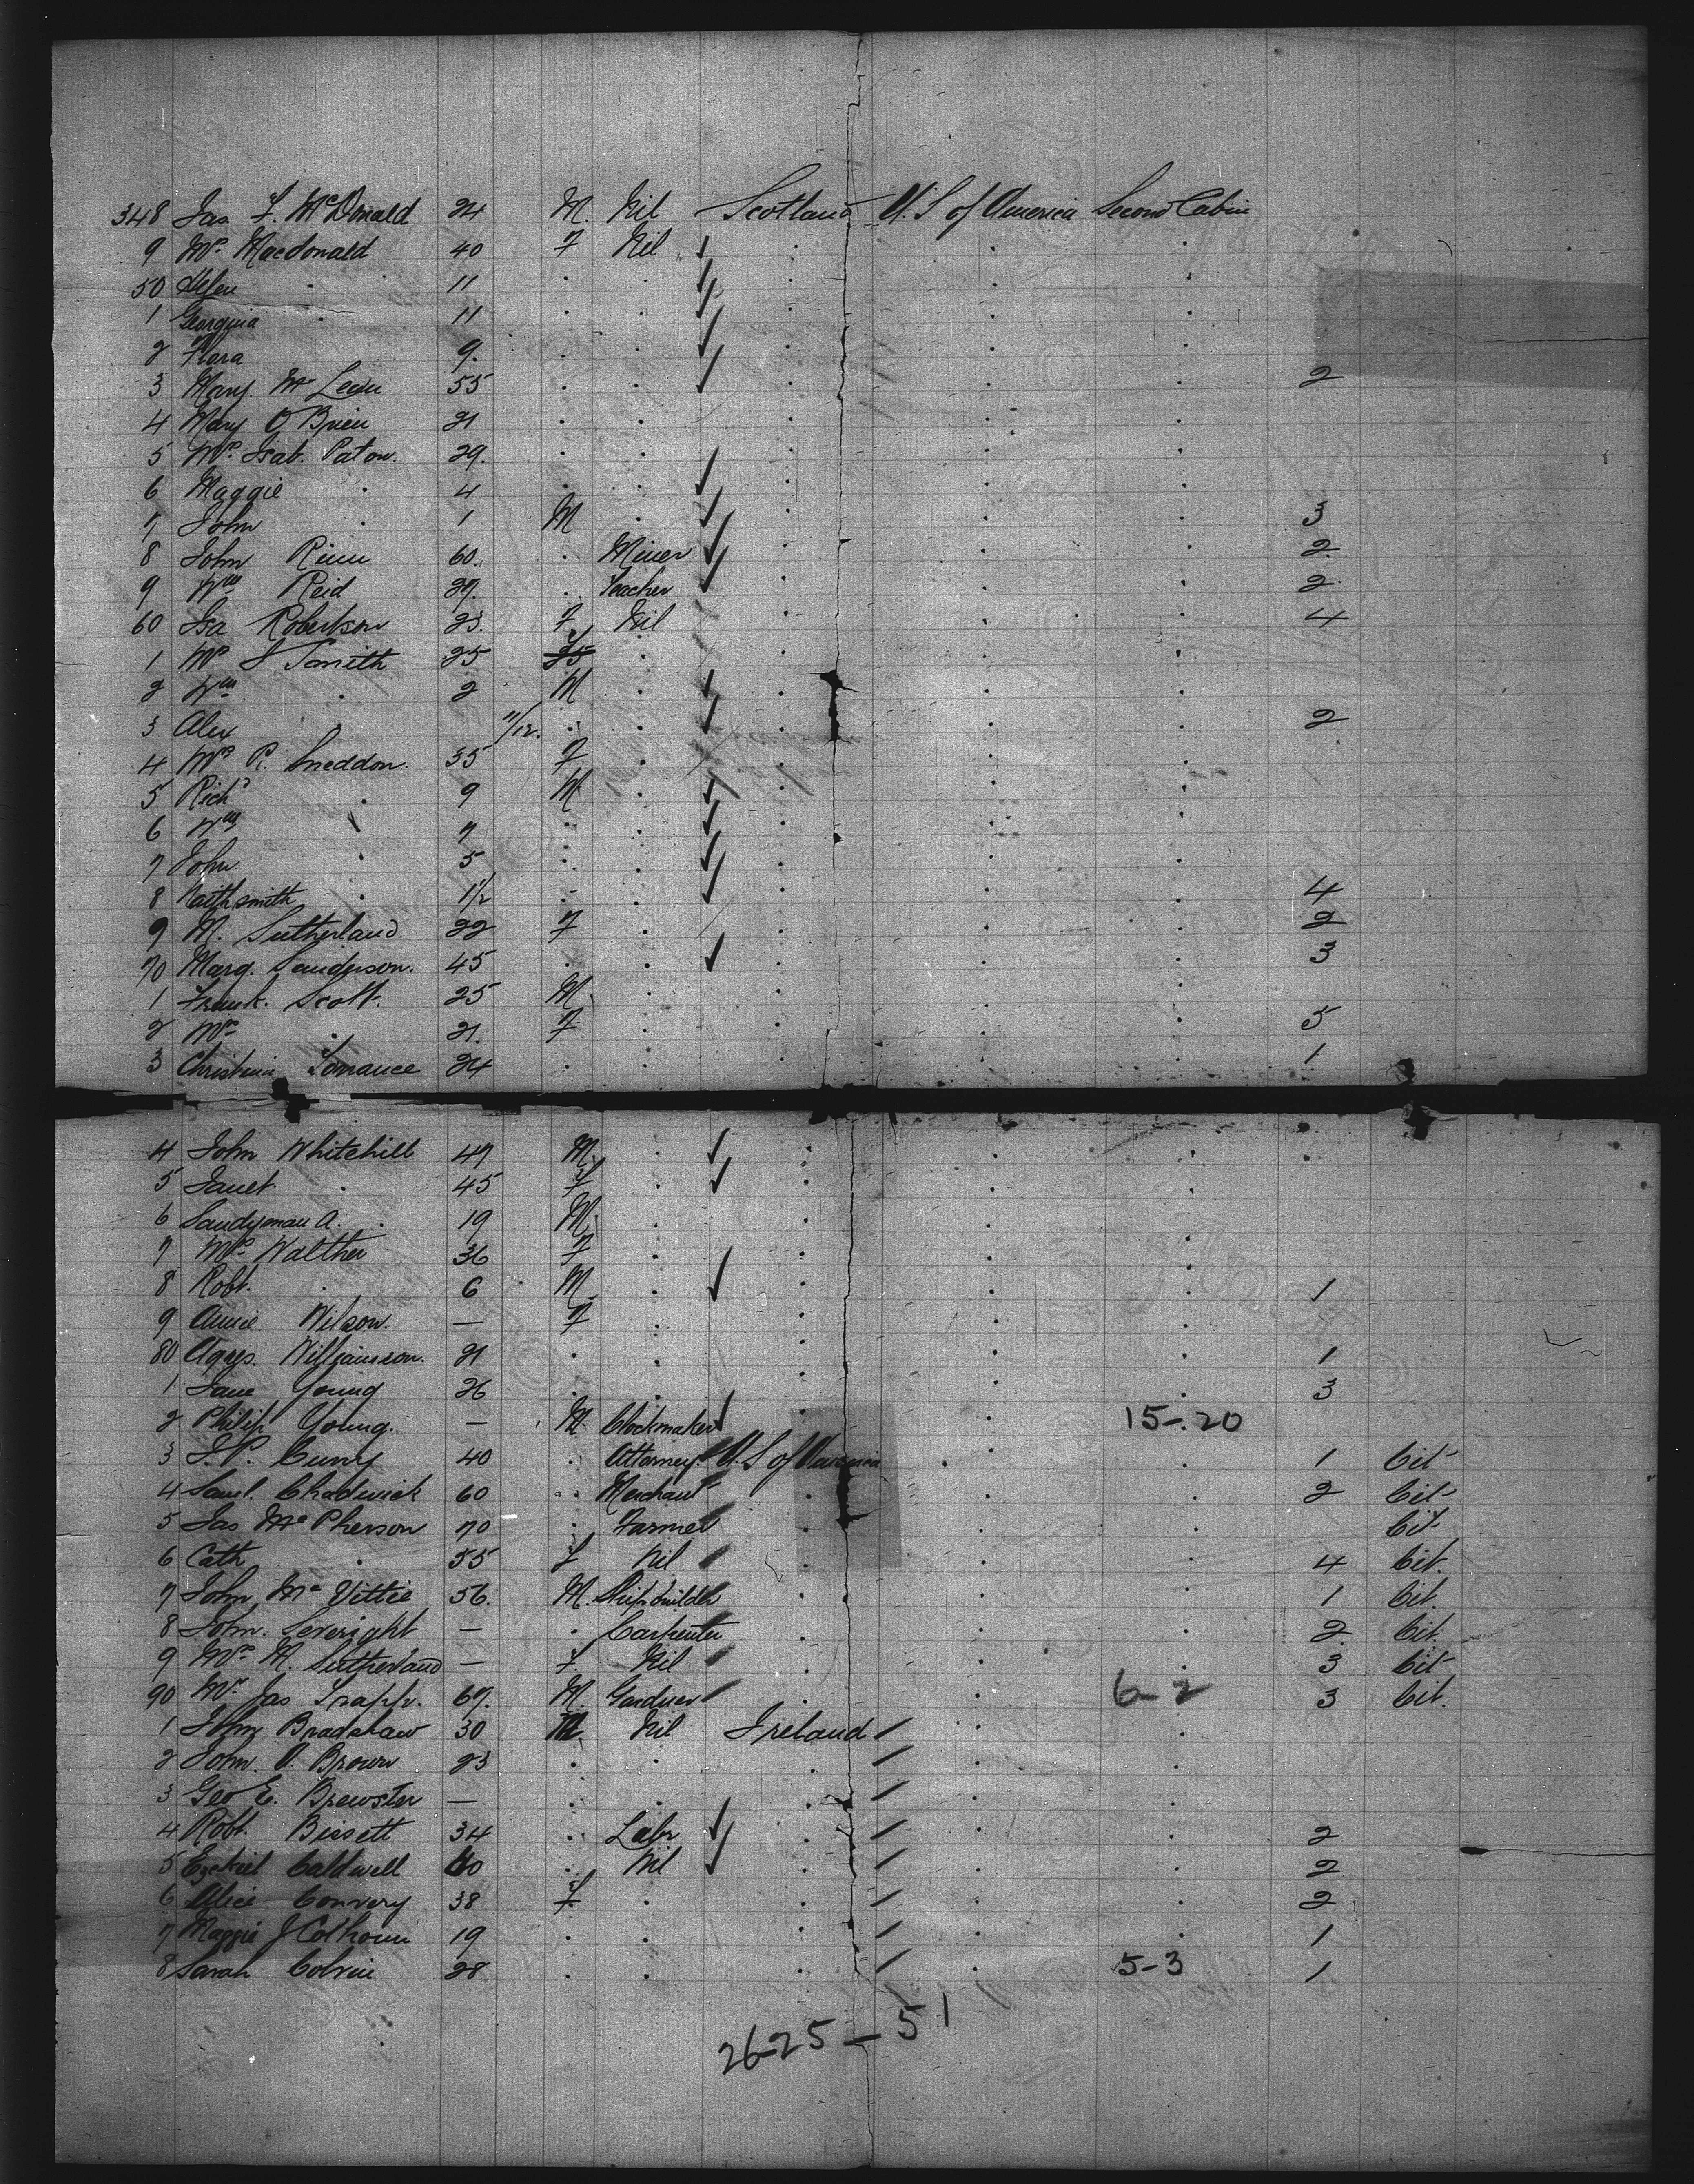 348 Jas. F. McDonald 24 M. Nil Scotland U.S of America Second Cabin
9 Mrs. Macdonald 40 F Nil
50 Helen 11
1 Georgina 11
2 Flora 9.
3 Mary McLean 55 2
4 Mary O'Brien 21
5 Mrs. Isab. Paton. 29.
6 Maggie 4
7 John 1 M 3
8 John 60. Miner 2
9 Wm Reid 27. Teacher 2
60 Isa Robertson 23. F Nil 4
1 Mrs J Smith 25 F
2 Wm 2 M
3 Alex 11/12. 2
4 Mrs R. Sneddon. 35 F
5 Richd 9 M
6 Wm 7
7 John 5
8 Naithsmith 1 1/2 4
9 M. Sutherland 22 F 2
70 Marg. Sanderson. 45 3
1 Frank. Scott. 25 M.
2 Mrs 21. F 5
3 Christina 24 1
4 John Whitehill 47 M.
5 Janet 45 F
6 Sandyman A. 19 M.
7 Mrs Walther 36 F
8 Robt. 6 M 1
9 Annie Wilson. — F
80 Agnes. Williamson. 21 1
1 Jane Young 26 3
2 Philip Young. — M. Clockmaker 15-20
3 J.P. Curry 40 Attorney U.S of America 1 Cit
4 Saml. Chadwick 60 Merchant 2 Cit
5 Jas McPherson 70 Farmer Cit
6 Cath 55 F Nil 4 Cit.
7 John McVittie 56. M. Shipbuilder 1 Cit.
8 John. Leveright — Carpenter 2. Cit.
9 Mrs M. Sutherland — F. Nil 3 Cit
90 Mr. Jas Trapp. 67. M. Gardner 6-2 3 Cit.
1 John Bradshaw 30 M. Nil Ireland
2 John. A. Brown 23
3 Geo E. Brewster —
4 Robt. Bissett 34 Labr 2
5 Ezekiel Caldwell 40 Nil 2
6 Alice Convery 38 F. 2
7 Maggie J Colhoun 19 1
8 Sarah Colvin 28 5-3 1
26-25 — 51